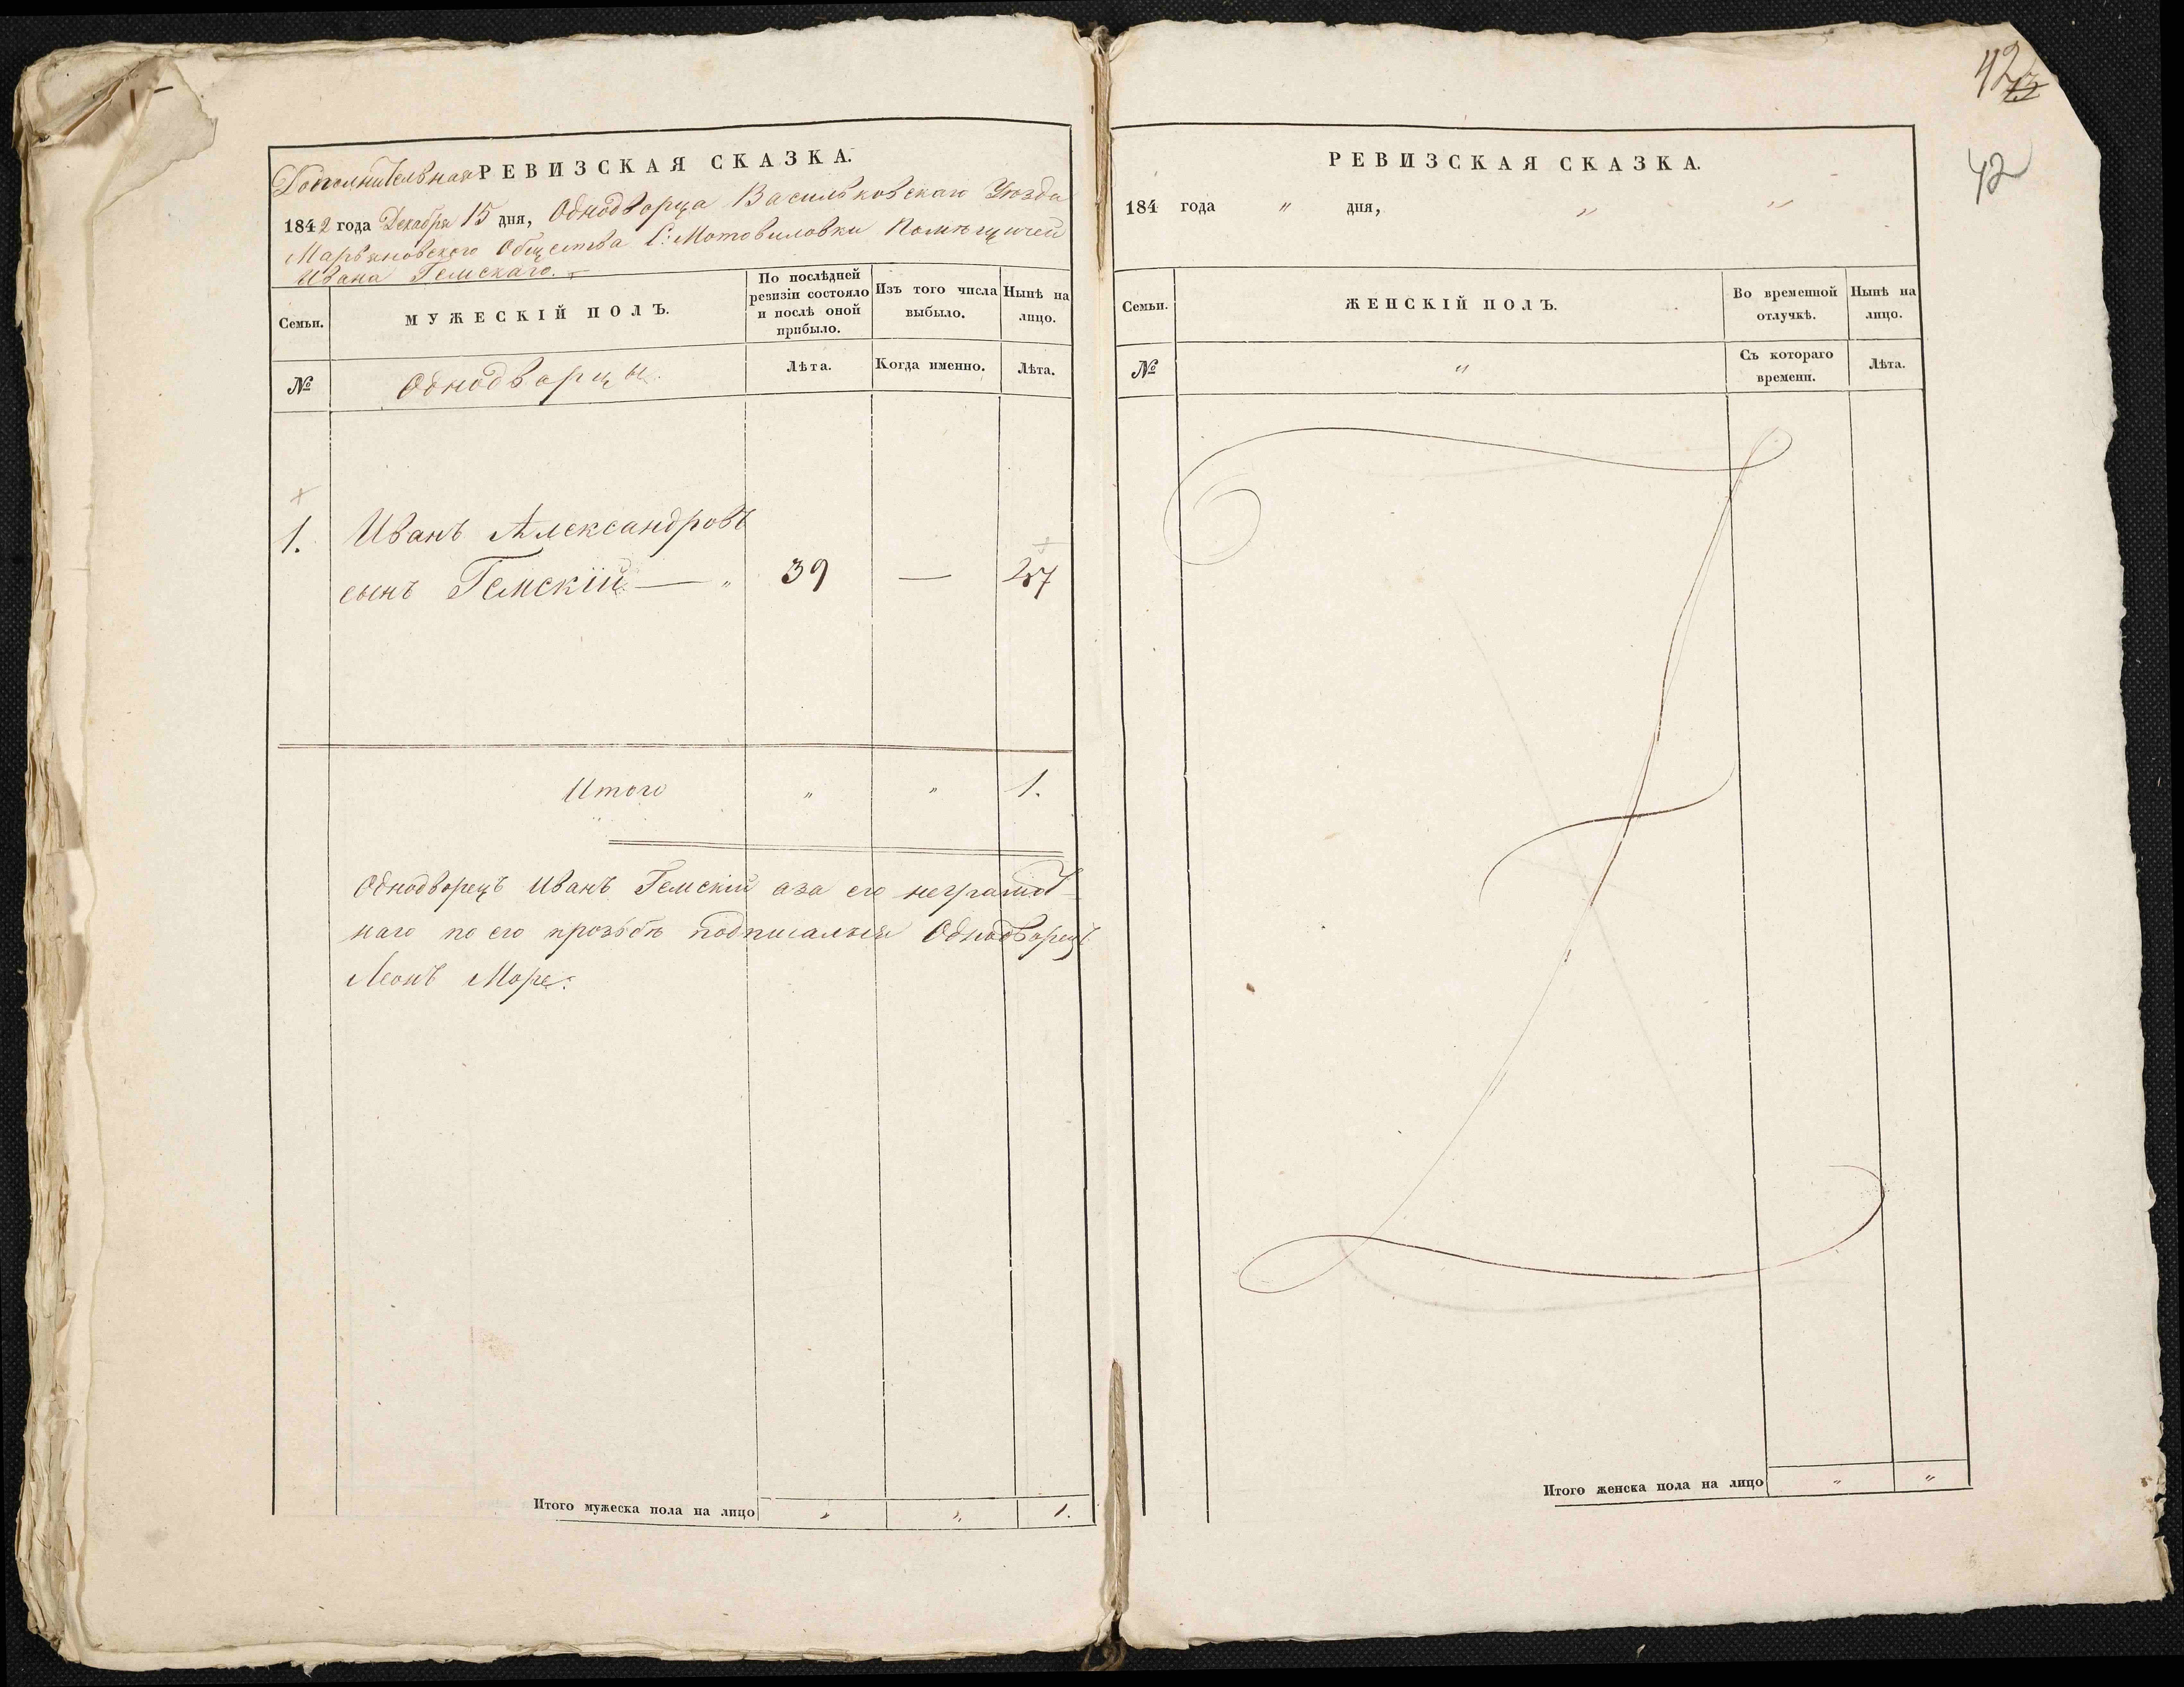 Дополнительная РЕВИЗСКАЯ СКАЗКА.
1842 года Декабря 15 дня, Однодворца Васильковскаго Уезда
Марьяновскаго Общества С: Мотовиловки Помѣщичей
Ивана Гемскаго.
Семьи.
МУЖЕСКІЙ ПОЛЪ.
По послѣдней ревизіи состояло и послѣ оной прибыло.
Изъ того числа выбыло.
Нынѣ на лицо.
№
Однодворцы.
Лѣта.
Когда именно.
Лѣта.
1. Иванъ Александровъ
сынъ Гемскій — " 39 —
Итого " " 1.
Однодворецъ Иванъ Гемскій аза его неграмот-
наго по его прозьбѣ подписался Однодворецъ
Леонъ Море:
Итого мужеска пола на лицо " " 1.
42
42
РЕВИЗСКАЯ СКАЗКА.
184 года " дня, " "
Семьи.
ЖЕНСКІЙ ПОЛЪ.
Во временной отлучкѣ.
Нынѣ на лицо.
№
"
Съ котораго времени.
Лѣта.
Итого женска пола на лицо " "